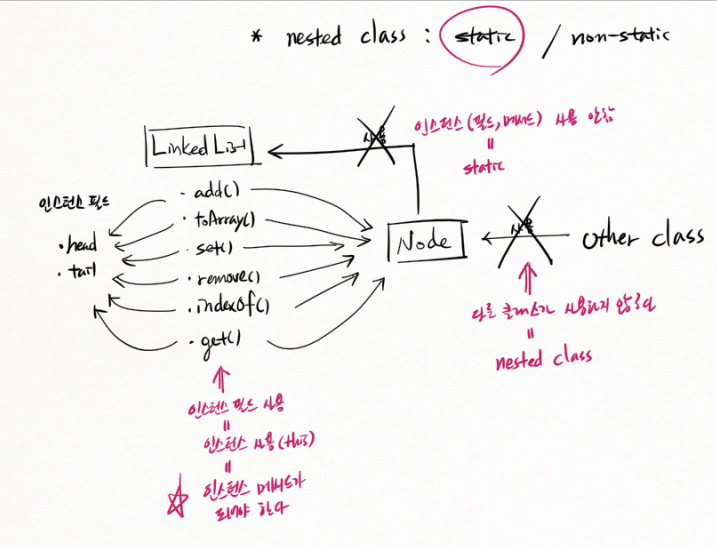 * nested class : static / non-static
LinkedList
사용
인스턴스(필드, 메서드) 사용 안함
=
static
인스턴스 필드
.head
.tail
.add()
.toArray()
.set()
.remove()
.indexOf()
.get()
Node
사용
Other class
다른 클래스가 사용하지 않는다면
=
nested class
인스턴스 필드 사용
=
인스턴스 사용(this)
=
인스턴스 메서드가
되어야 한다